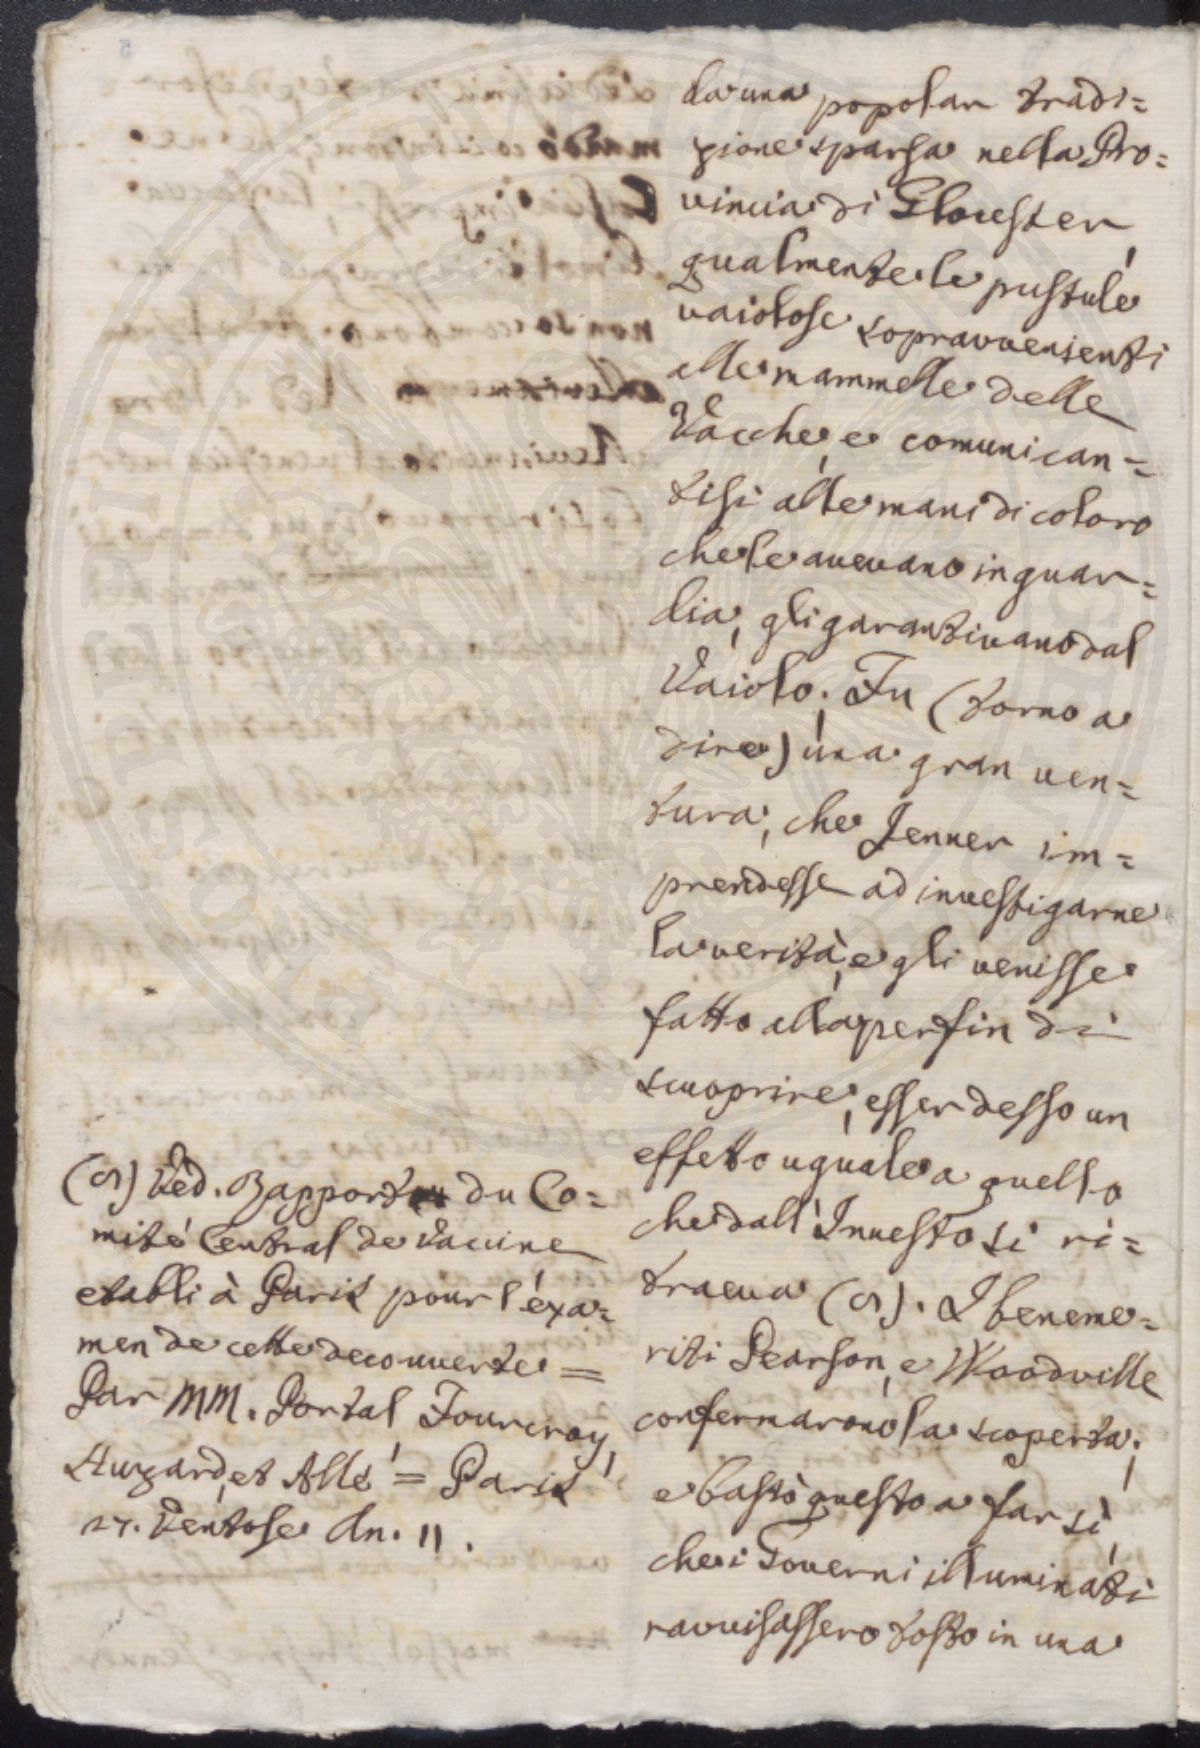 da una popolar tradi=
zione sparsa nella Pro=
vincia di Glocester,
qualmente le pustule
vaiolose sopravvenienti
alle mammelle delle
Vacche, e comunican=
tisi alle mani di coloro
che le avevano in guar=
dia, gli garantivano dal
Vaiolo. Fu (torno a
dire) una gran ven=
tura, che Jenner im=
prendesse ad investigarne
la verità, e gli venisse
fatto alla perfin di
scuoprire, esser desso un
effetto uguale a quello
che dall'Innesto si ri=
traeva (a). I beneme=
riti Pearson, e Woodville
confermarono la scoperta;
e bastò questo a far sì,
che i Governi illuminati
ravvisassero tosto in una
(a) Ved. Rapport du Co=
mité Central de Vaccine
etabli à Paris pour l'éxa=
men de cette decouverte =
Par MM. Portal, Fourcroy,
Huzard, et Allé = Paris
27. Ventose An. 11.